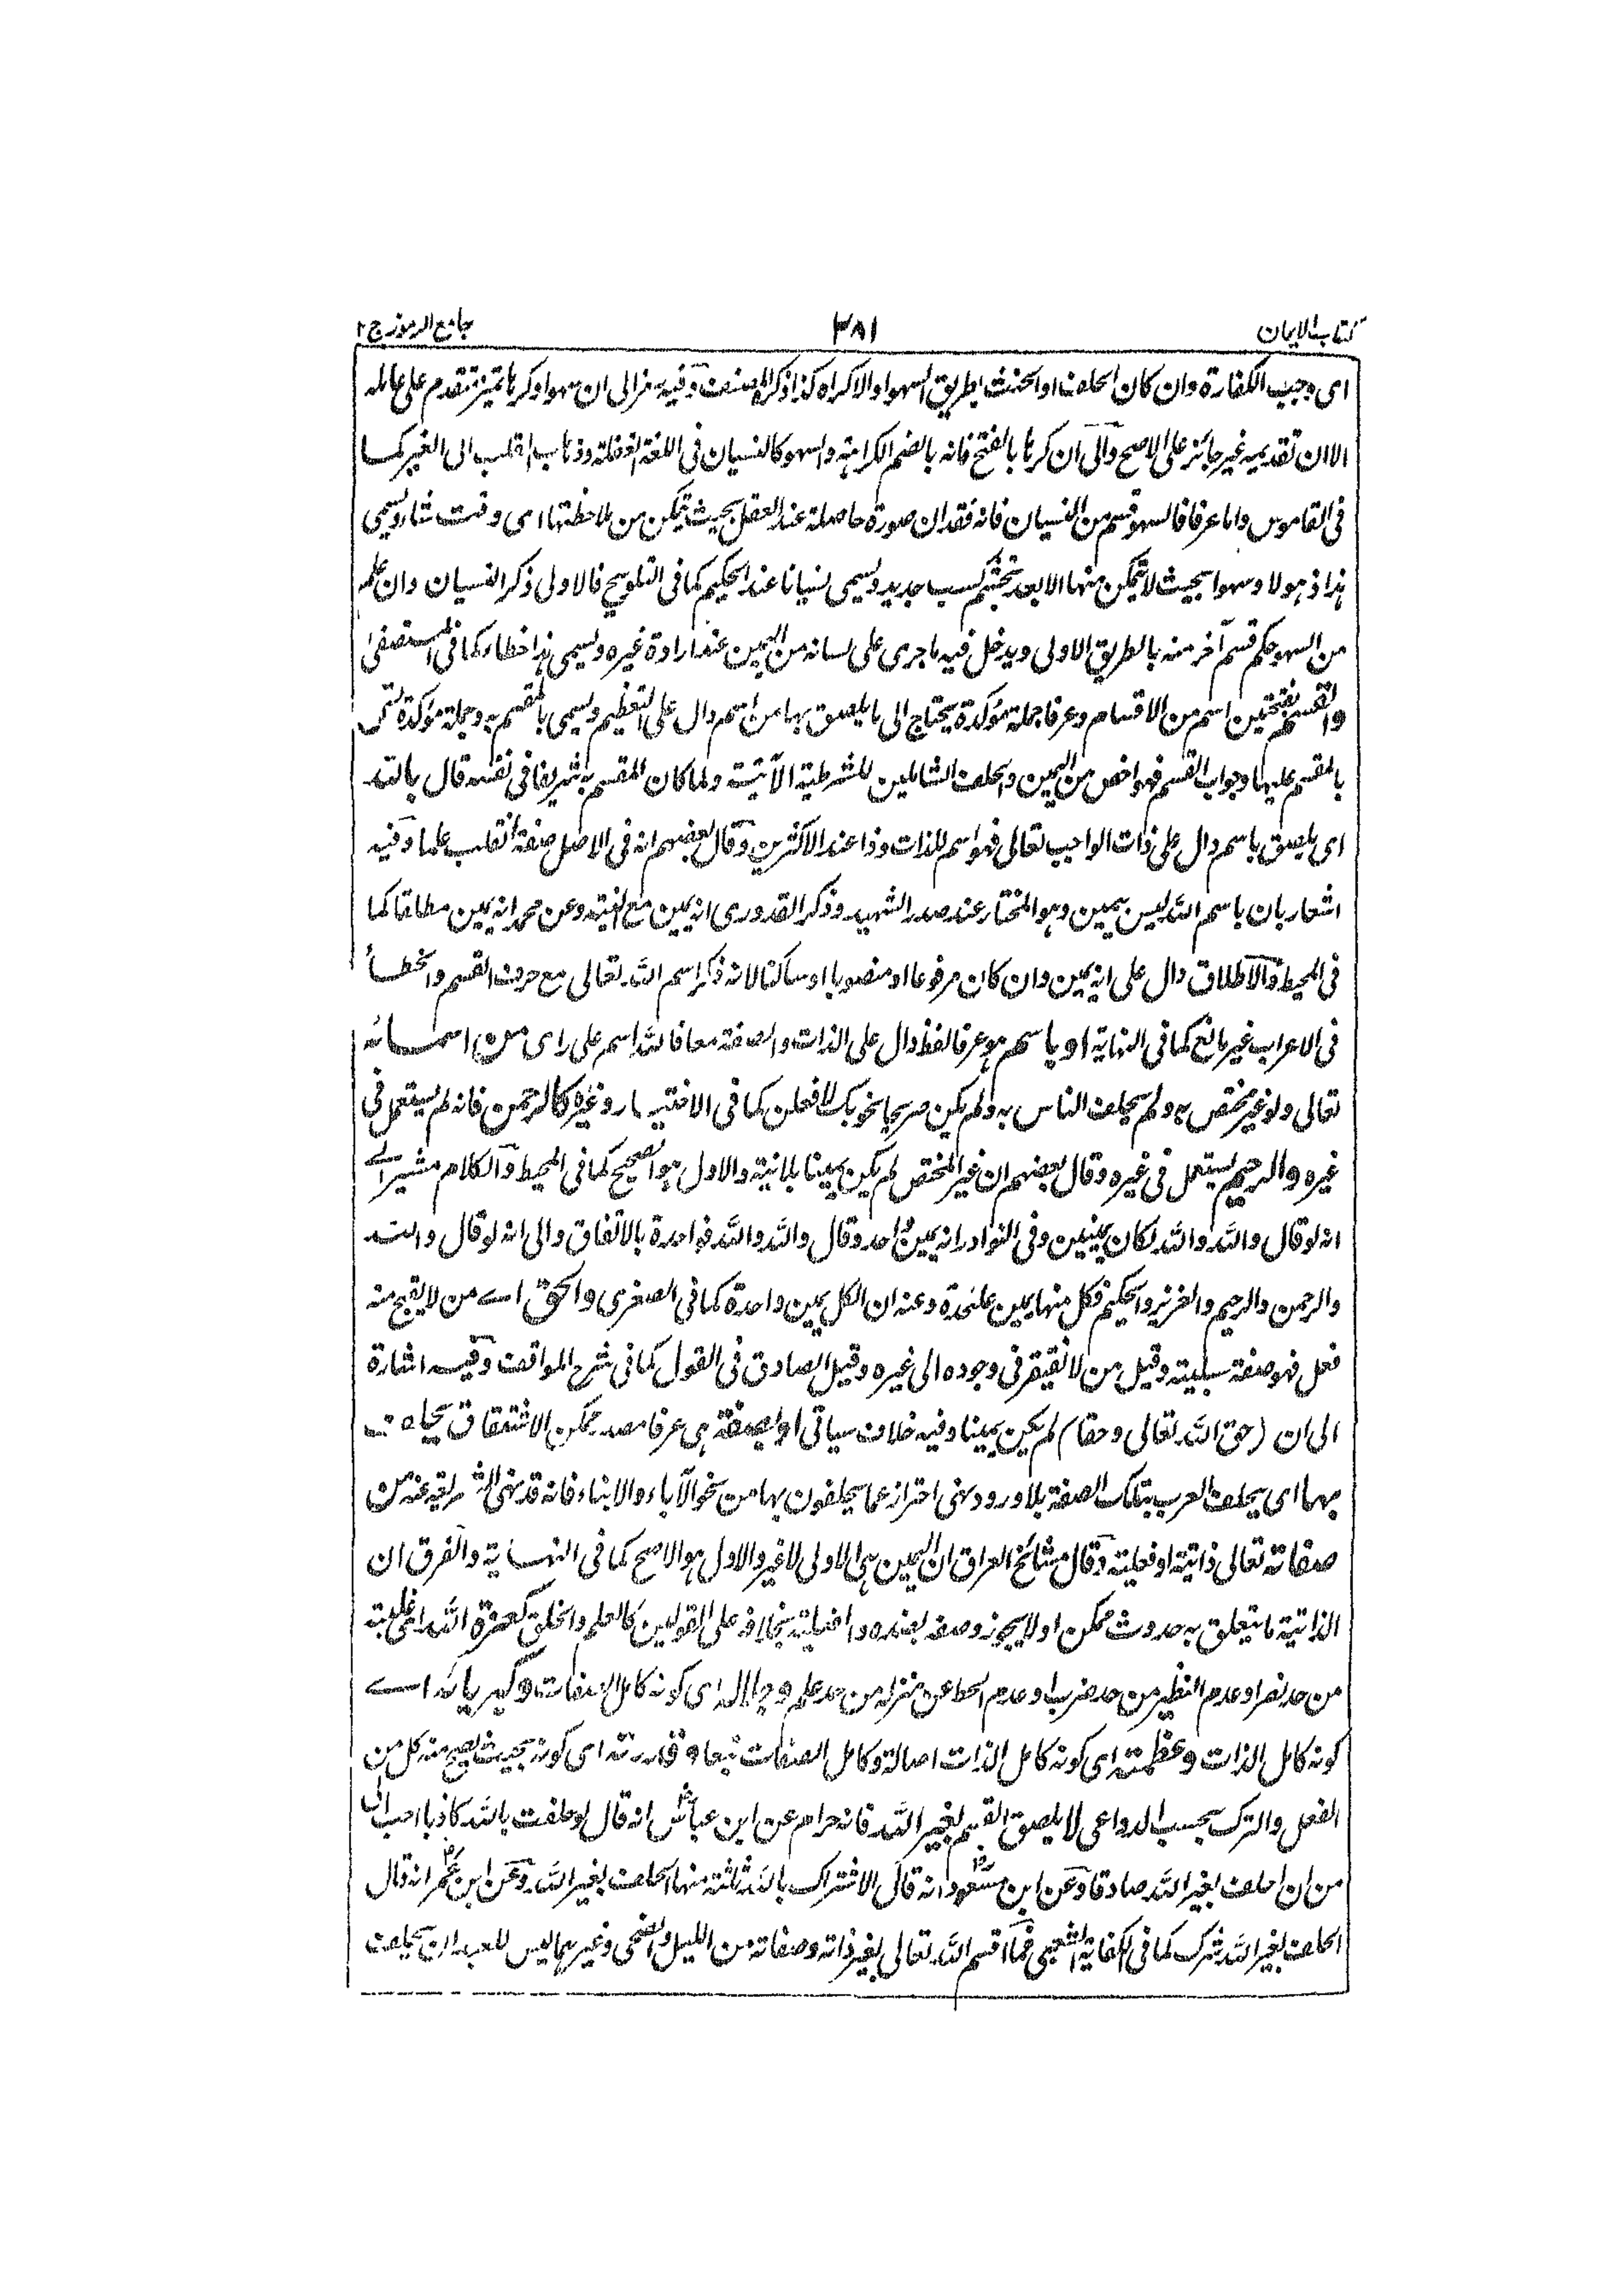 كتاب الايمان ٣٨١ جامع الرموز ج ٢
اى وجب الكفارة وان كان الحلف او الحنث بطريق السهو او الاكراه كذا ذكره المصنف وفيه رمز الى ان سهوا وكرها تميز تقدم على عامله
الا ان تقديمه غير جائز على الاصح والى ان كرها بالفتح فانه بالضم الكراهة والسهو كالنسيان فى اللغة الغفلة وذهاب القلب الى الغير كما
فى القاموس واما عرفا فالسهو قسم من النسيان فانه فقدان صورة حاصلة عند العقل بحيث يتمكن من ملاحظتها اى وقت شاء ويسمى
هذا ذهولا وسهوا بحيث لا يتمكن منها الا بعد تجشم كسب جديد ويسمى نسيانا عند الحكيم كما فى التلويح فالاولى ذكر النسيان وان علم
من السهو حكم قسم آخر منه بالطريق الاولى ويدخل فيه ما جرى على لسانه من اليمين عند ارادة غيره ويسمى هذا خطاء كما فى المستصفى
والقسم بفتحتين اسم من الاقسام وعرفا جملة مؤكدة يحتاج الى ما يلصق بها من اسم دال على التعظيم ويسمى بالمقسم به وجملة مؤكدة تسمى
بالمقسم عليها وجواب القسم فهو اخص من اليمين والحلف الشاملين للشرطية الآتية ولما كان المقسم به شريفا فى نفسه قال بالله
اى يلصق باسم دال على ذات الواجب تعالى فهو اسم للذات وذا عند الاكثرين وقال بعضهم انه فى الاصل صفة انقلب علما وفيه
اشعار بان باسم الله ليس بيمين وهو المختار عند صدر الشهيد وذكر القدورى انه يمين مع النية وعن محمد انه يمين مطلقا كما
فى المحيط والاطلاق دال على انه يمين وان كان مرفوعا او منصوبا او ساكنا لانه ذكر اسم الله تعالى مع حرف القسم والخطأ
فى الاعراب غير مانع كما فى النهاية او باسم هو عرفا لفظ دال على الذات والصفة معا فالله اسم على راى من اسمائه
تعالى ولو غير مختص به ولم يحلف الناس به ولم يكن صريحا نحو بك لافعلن كما فى الاختيار وغيره كالرحمن فانه لم يستعمل فى
غيره والرحيم يستعمل فى غيره وقال بعضهم ان غير المختص لم يكن يمينا بلا نية والاول هو الصحيح كما فى المحيط والكلام مشير الى
انه لو قال والله والله لكان يمينين وفى النوادر انه يمين واحد وقال والله والله فواحدة بالاتفاق والى انه لو قال والله
والرحمن والرحيم والعزيز والحكيم فكل منها يمين علىحدة وعنه ان الكل يمين واحدة كما فى الصغرى والحق اى من لا يقبح منه
فعل فهو صفة سلبية وقيل من لا يفتقر فى وجوده الى غيره وقيل الصادق فى القول كما فى شرح المواقف وفيه اشارة
الى ان (حق الله تعالى وحقا) لم يكن يمينا وفيه خلاف سياتى او بصفة هى عرفا مصدر ممكن الاشتقاق يحلف
بها اى يحلف العرب بتلك الصفة بلا ورود نهى احتراز عما يحلفون بها من نحو الآباء والابناء فانه قد نهى الشريعة عنه من
صفاته تعالى ذاتية او فعلية وقال مشائخ العراق ان اليمين هى الاولى لا غير والاول هو الاصح كما فى النهاية والفرق ان
الذاتية ما يتعلق به حدوث ممكن او لا يجوز وصفه بضده والفعلية بخلافه على القولين كالعلم والخلق كعزة الله اى غلبته
من حد نصر او عدم النظير من حد ضرب او عدم الحط عن منزله من حد علم وجلاله اى كونه كامل الصفات وكبريائه اى
كونه كامل الذات وعظمته اى كونه كامل الذات اصالة وكامل الصفات تبعا وقدرته اى كونه بحيث يصح منه كل من
الفعل والترك بحسب الدواعى لا يلصق القسم بغير الله فانه حرام عن ابن عباس انه قال لو حلفت بالله كاذبا احب الى
من ان احلف بغير الله صادقا وعن ابن مسعود انه قال الاشراك بالله ثلثة منها الحلف بغير الله وعن ابن عمر انه قال
الحلف بغير الله شرك كما فى كفاية الشعبى فما اقسم الله تعالى بغير ذاته وصفاته من الليل والضحى وغيرهما ليس للعبد ان يحلف